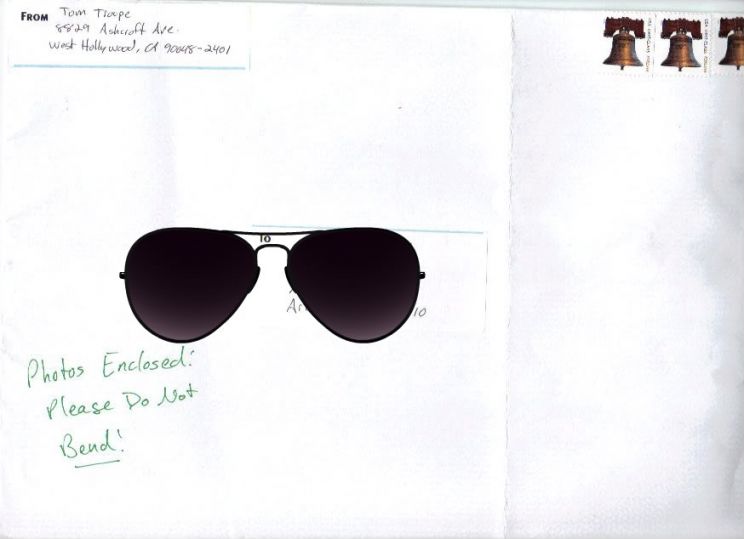 FROM Tom Troupe
8829 Ashcroft Ave.
West Hollywood, CA 90048-2401
TO
Photos Enclosed!
Please Do Not
Bend!